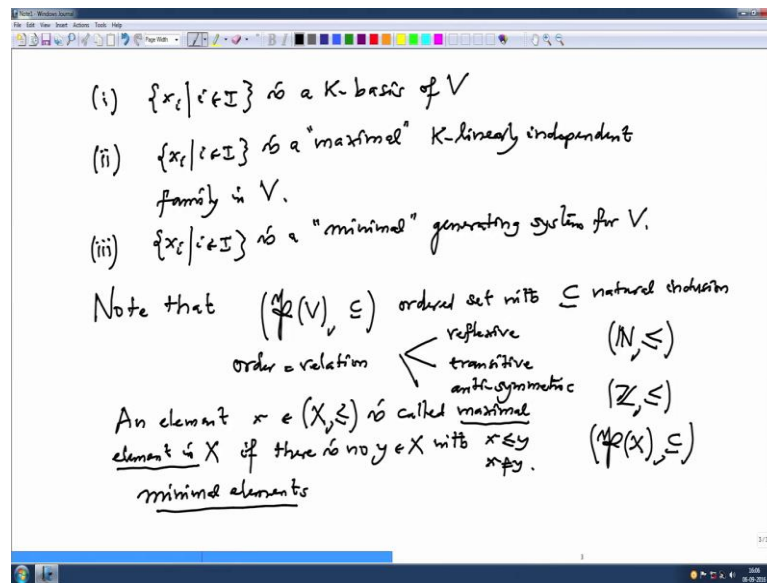 Note1 - Windows Journal
File Edit View Insert Actions Tools Help
Page Width
(i) {x_i | i ∈ I} is a K-basis of V
(ii) {x_i | i ∈ I} is a "maximal" K-linearly independent
family in V.
(iii) {x_i | i ∈ I} is a "minimal" generating system for V.
Note that (𝔓(V), ⊆) ordered set with ⊆ natural inclusion
order = relation
reflexive
transitive
anti-symmetric
(ℕ, ≤)
(ℤ, ≤)
(𝔓(X), ⊆)
An element x ∈ (X, ≤) is called maximal
element in X if there is no y ∈ X with x ≤ y
x ≠ y.
minimal elements
3
3/3
16:06
06-09-2018